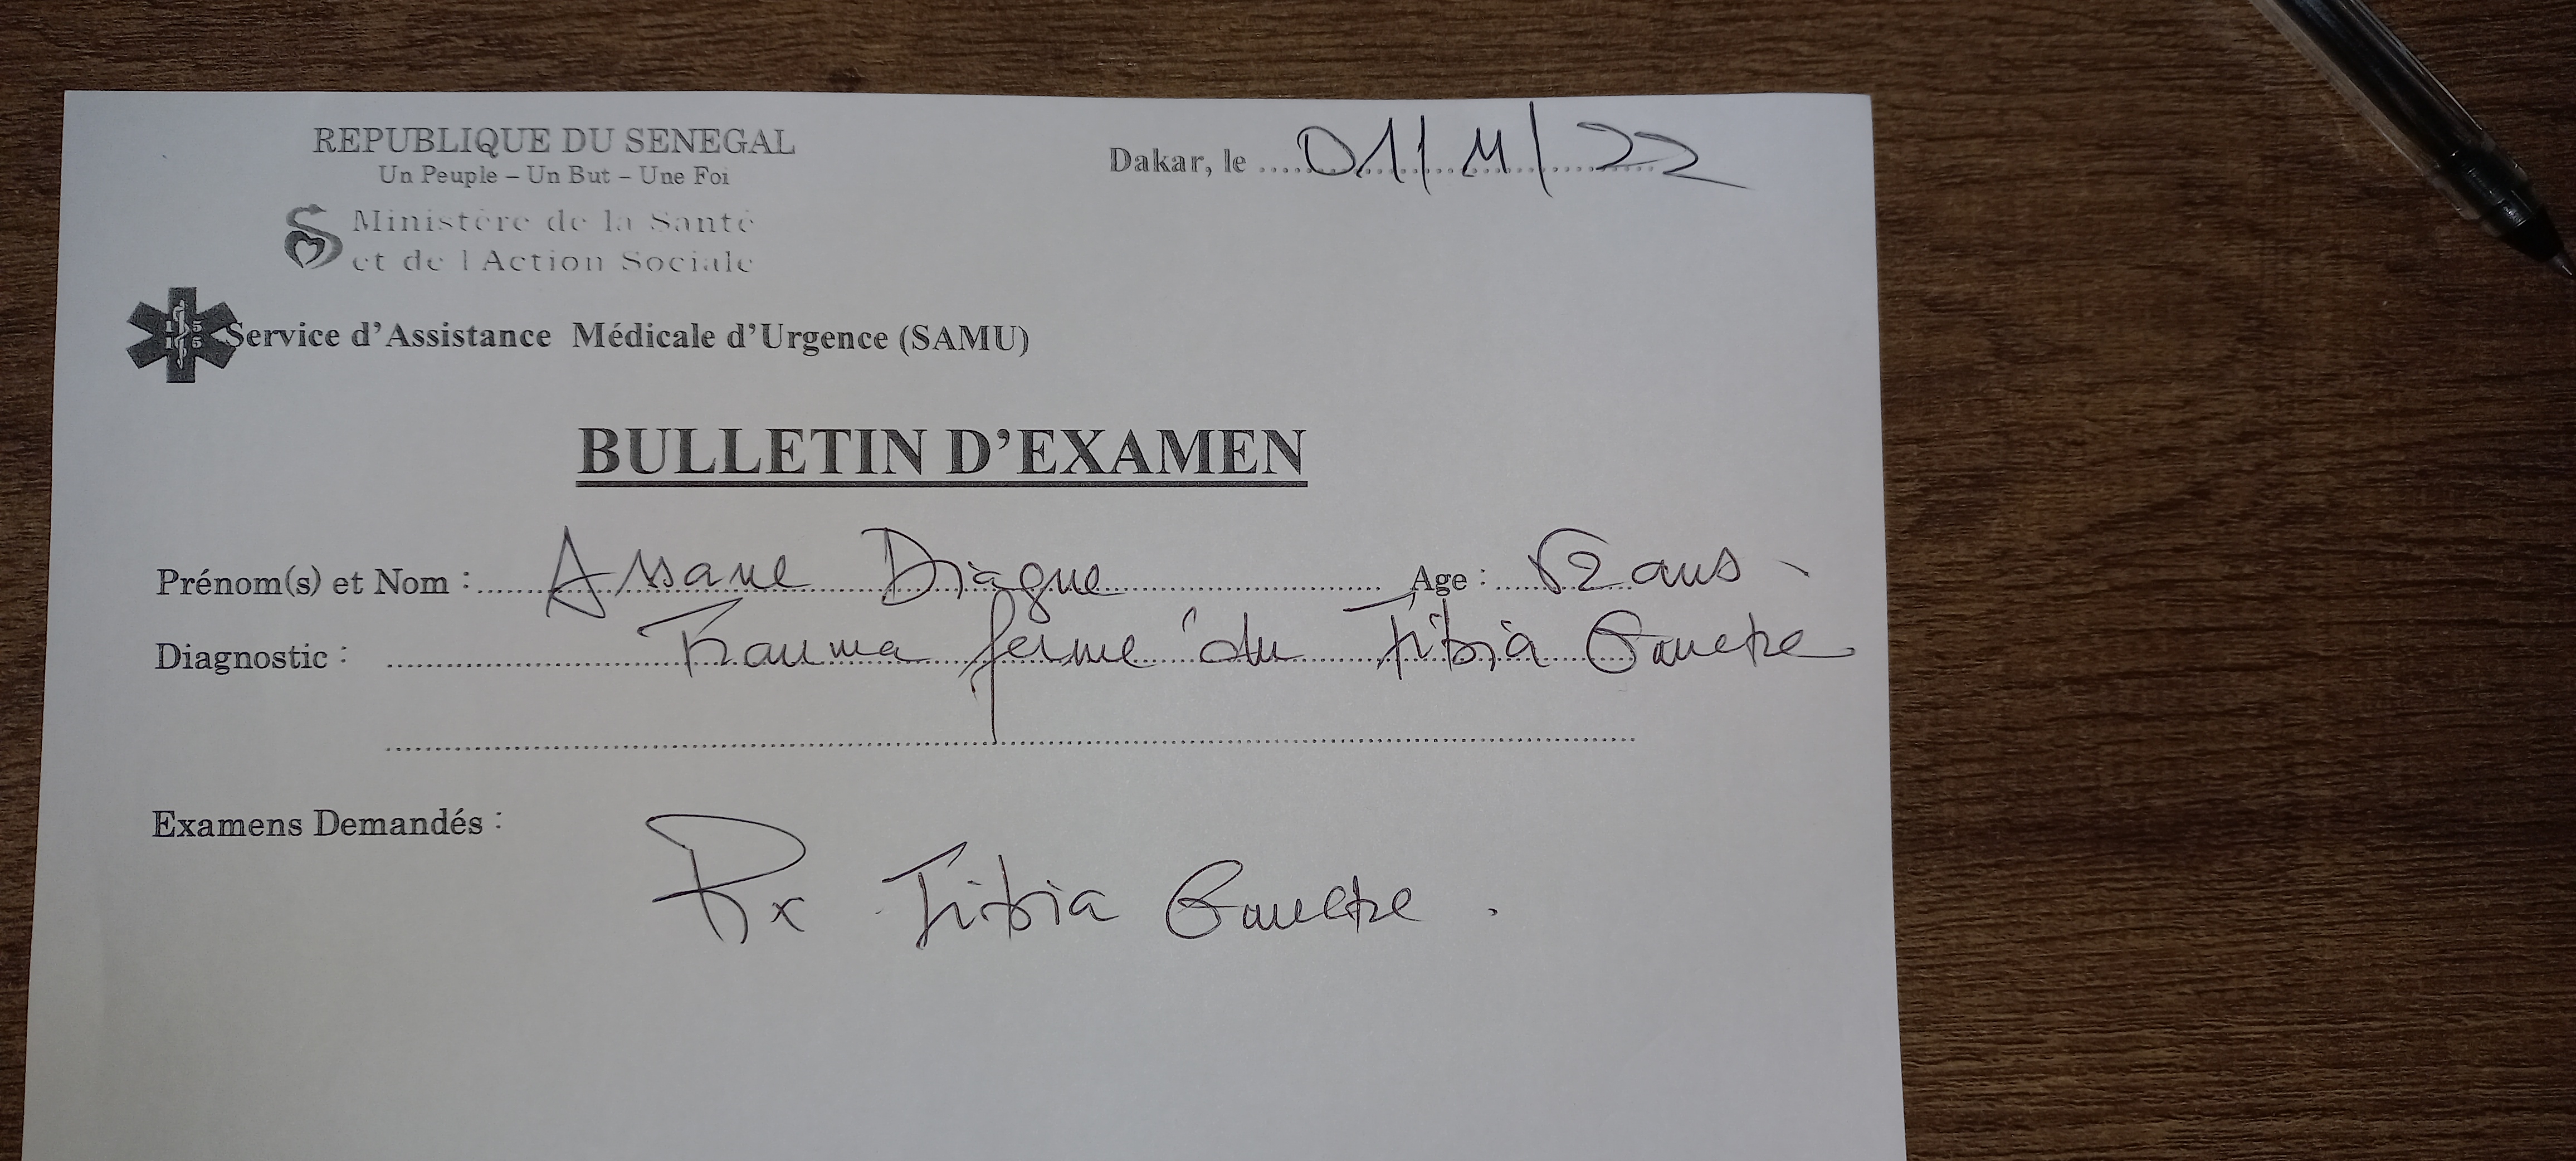 REPUBLIQUE DU SENEGAL
Un Peuple – Un But – Une Foi
Ministère de la Santé
et de l'Action Sociale
Service d'Assistance Médicale d'Urgence (SAMU)
Dakar, le 01/11/22
BULLETIN D'EXAMEN
Prénom(s) et Nom : Assane Diagne Age : 52 ans
Diagnostic : Trauma fermé du Tibia Gauche
Examens Demandés :
Rx Tibia Gauche.